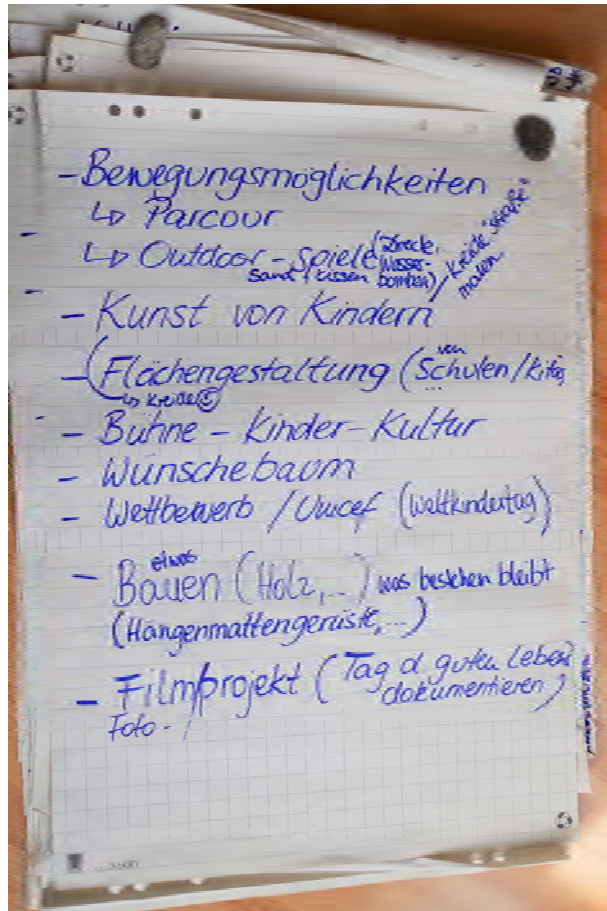 - Bewegungsmöglichkeiten
↳ Parcour
↳ Outdoor-Spiele (Strecke, Wasserbomben) / Kreide "Straße" malen
Sand / Kissen
- Kunst von Kindern
- (Flächengestaltung (von Schulen / Kitas
↳ Kreide ...
- Bühne - Kinder-Kultur
- Wunschebaum
- Wettbewerb / Unicef (Weltkindertag)
- etwas Bauen (Holz, ...) was bestehen bleibt
(Hängenmattengerüste, ...)
- Filmprojekt (Tag d. guten Lebens
dokumentieren)
Foto - /